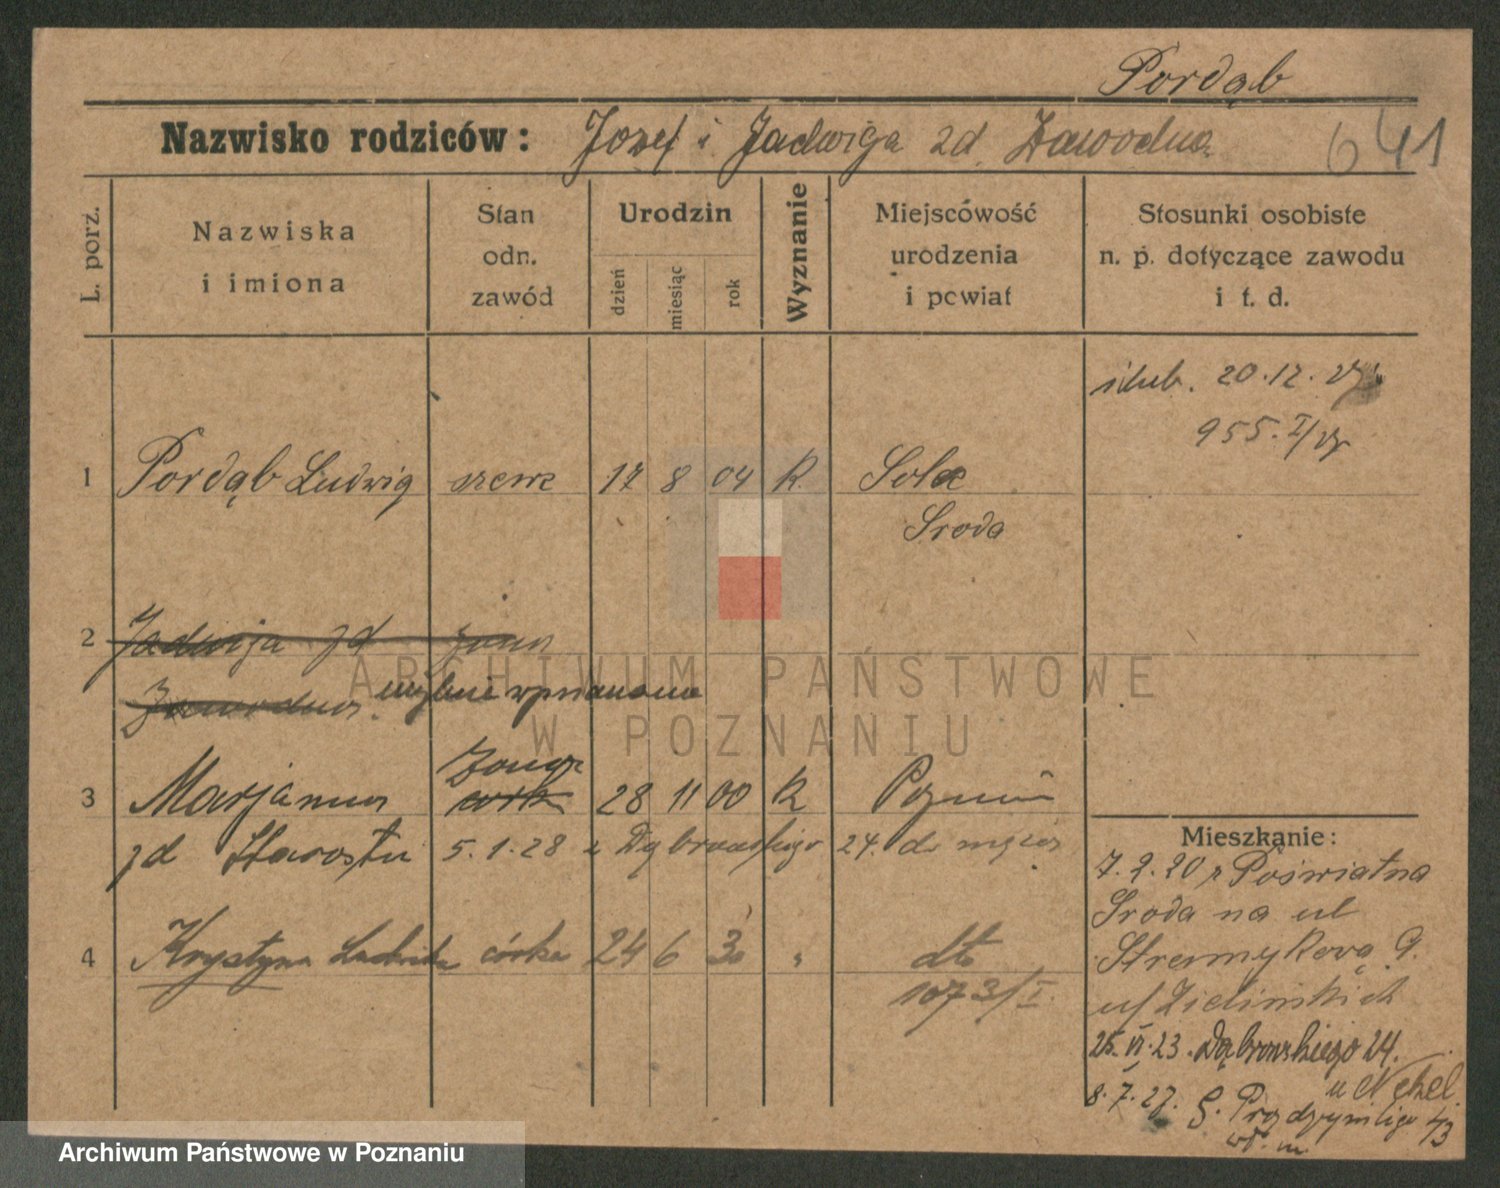 Pordąb
Nazwisko rodziców: Józef i Jadwiga zd. Zawodna 641
L. porz.
Nazwiska i imiona
Stan odn. zawód
Urodzin
dzień miesiąc rok
Wyznanie
Miejscówość urodzenia i powiat
Stosunki osobiste n. p. dotyczące zawodu i t. d.
ślub. 20.12.
955. I/
1 Pordąb Ludwig szewc 17 8 04 K. Solec
Środa
2 Jadwiga zd żona
Zawodna. mylnie wpisana
żona
3 Marjanna córka 28 11 00 K Poznań
zd Starosta 5.1.28 z Dąbrowskiego 24. do męża
4 Krystyna córka 24 6 30 " dto
1073/I.
Mieszkanie:
7.2.20 z Poświatna
Środa na ul
9.
u/ Zielińskich
25.VI.23. Dąbrowskiego 24.
8.7.27.
ARCHIWUM PAŃSTWOWE
W POZNANIU
Archiwum Państwowe w Poznaniu